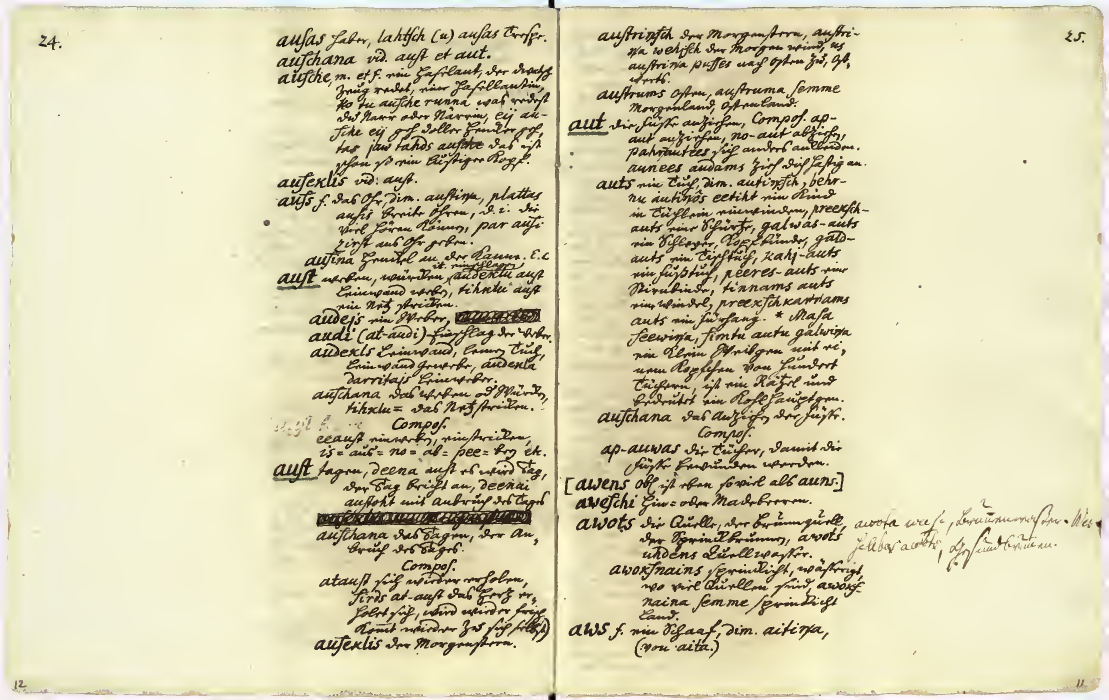 24.
ausas Haber, lahtsch (u) ausas Trespe.
auschana vid. aust et aut.
ausche, m. et f. ein Haselant, der
Zeug redet, eine Hasellantin,
ko tu ausche runna was redest
du Narr oder Närrin, eij au-
sche eij geh toller Hender geh,
tas jau tahds ausche das ist
schon so ein lustiger Kopf.
auseklis vid. aust.
auss f. das Ohr, dim. austiņa, plattas
ausis breite Ohren, d. i. die
viel hören können, par ausi
zirst ans Ohr geben.
ausina Henckel an der Kanne. Ec
aust weben, würcken, it. einschlagen audeklu aust
Leinwand weben, tihklu aust
ein Netz stricken.
audejs ein Weber,
audi (at-audi) Einschlag der Weber.
audekls Leinwand, leinen Tuch,
Leinwand gewebe, audekla
darritajs Leinweber.
auschana das weben od Würcken,
tihklu= das Netzstricken.
Compos.
eeaust einweben, einstricken,
is= aus= no= ab= pee= bey etc.
aust tagen, deena aust es wird Tag,
der Tag bricht an, deenai
austoht mit Anbruch des Tages
auschana das Tagen, der An-
bruch des Tages.
Compos.
ataust sich wieder erholen,
sirds at-aust das Hertz er-
holet sich, wird wieder frisch
kommt wieder zu sich selbst)
auseklis der Morgenstern.
12
25.
austrinsch der Morgenstern, austri-
ņa wehjsch der Morgen wind, us
austriņa pusses nach Osten zu, Ost-
werts.
austrums Osten, austruma semme
Morgenland, Ostenland.
aut die Füsse anziehen, Compos. ap-
aut anziehen, no-aut abziehen,
pahrautees sich anders ankleiden.
aunees audams zieh dich hastig an.
auts ein Tuch, dim. autiņsch, behr-
nu autiņôs eetiht ein Kind
in Tüchlein einwinden, preeksch-
auts eine Schürtze, galwas-auts
ein Schleyer, Kopfbinde, gald-
auts ein Tischtuch, kahj-auts
ein Fusstuch, peeres-auts eine
Stirnbinde, tinnams auts
eine windel, preekschkarrams
auts ein Fürhang. * Masa
seewiņa, simtu autu galwiņa
ein klein Weibgen mit ei-
nem Köpfchen von hundert
Tüchern, ist ein Räzel und
bedeutet ein Kohl Hauptgen.
auschana das Anziehen der Füsse.
Compos.
ap-auwas die Tücher, damit die
Füsse bewunden werden.
[awens obs. ist eben soviel als auns.]
aweschi Him= oder Madebeeren.
awots die Quelle, der Brunnquell,
der Springbrunn, awots
uhdens Quellwasser.
awoksnains sprindicht, wässerigt,
wo viel Quellen sind, awoks-
naina semme sprindicht
Land.
awota , Brunnenwasser.
awots, Gesundbrunnen.
aws f. ein Schaaf, dim. aitiņa,
(von aita.)
11